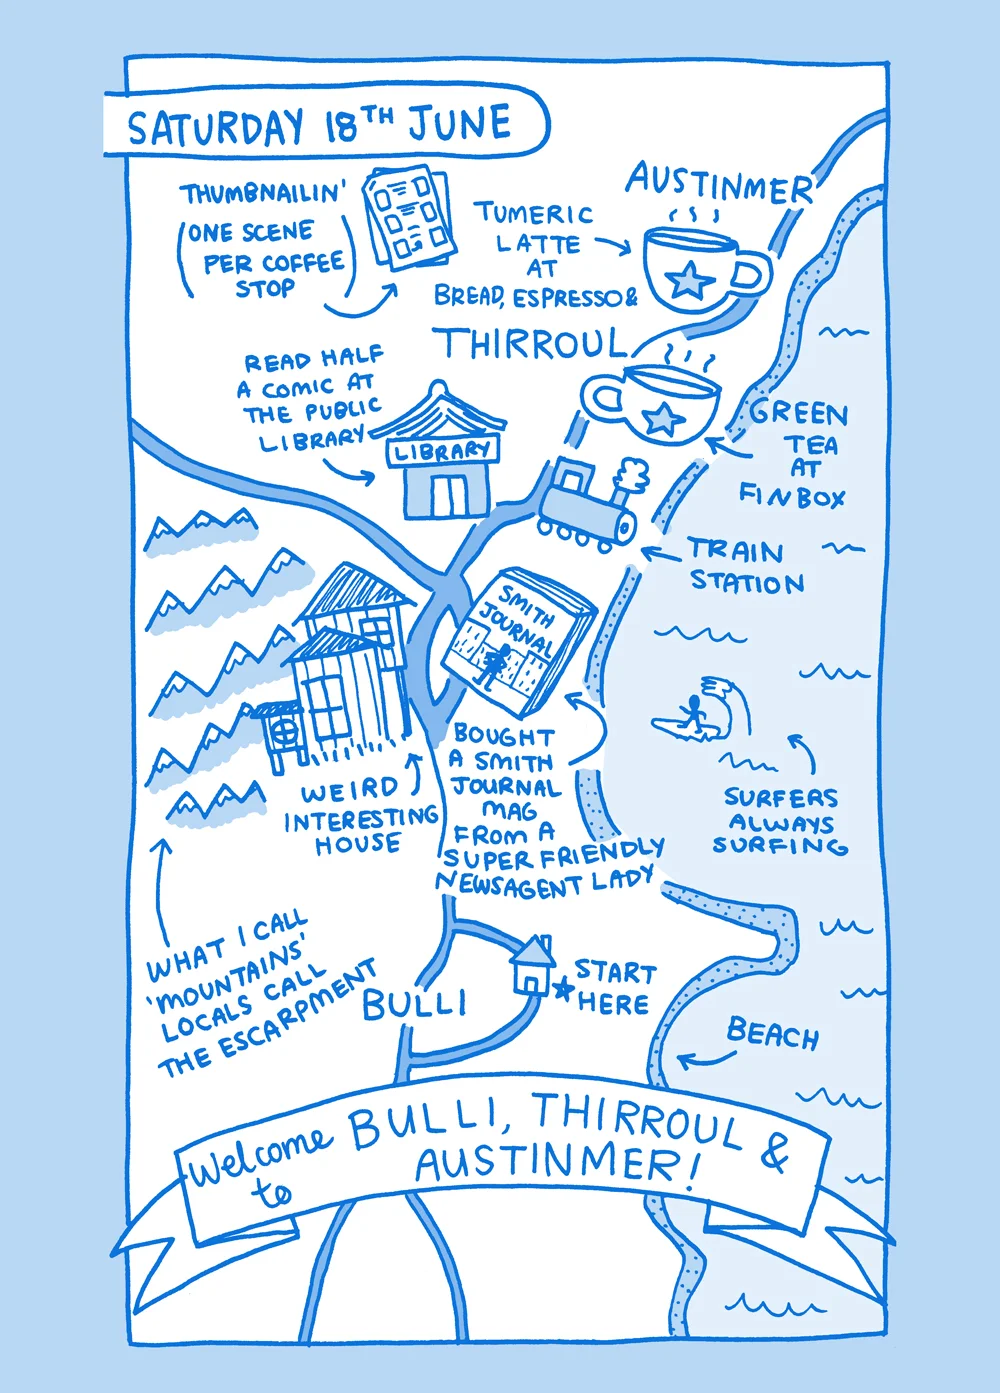 SATURDAY 18TH JUNE
THUMBNAILIN'
(ONE SCENE
PER COFFEE
STOP)
AUSTINMER
TUMERIC
LATTE
AT
BREAD, ESPRESSO &
THIRROUL
READ HALF
A COMIC AT
THE PUBLIC
LIBRARY
LIBRARY
GREEN
TEA
AT
FINBOX
TRAIN
STATION
SMITH
JOURNAL
BOUGHT
A SMITH
JOURNAL
MAG
FROM A
SUPER FRIENDLY
NEWSAGENT LADY
WEIRD
INTERESTING
HOUSE
SURFERS
ALWAYS
SURFING
WHAT I CALL
'MOUNTAINS'
LOCALS CALL
THE ESCARPMENT
BULLI
START
HERE
BEACH
Welcome to
BULLI, THIRROUL &
AUSTINMER!